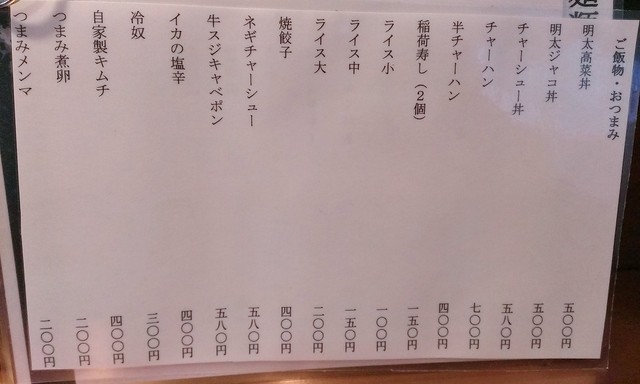 ご飯物・おつまみ
明太高菜丼 五〇〇円
明太ジャコ丼 五〇〇円
チャーシュー丼 五八〇円
チャーハン 七〇〇円
半チャーハン 四〇〇円
稲荷寿し(2個) 一五〇円
ライス小 一〇〇円
ライス中 一五〇円
ライス大 二〇〇円
焼餃子 四〇〇円
ネギチャーシュー 五八〇円
牛スジキャベポン 五八〇円
イカの塩辛 四〇〇円
冷奴 三〇〇円
自家製キムチ 四〇〇円
つまみ煮卵 二〇〇円
つまみメンマ 二〇〇円